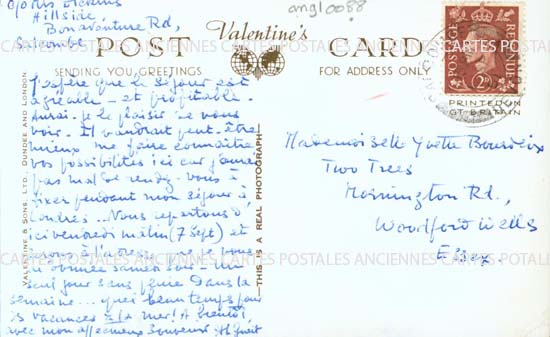 angl0088
Hillside
Bonaventure Rd,
Salcombe
Valentine's
POST CARD
SENDING YOU GREETINGS
FOR ADDRESS ONLY
POSTAGE REVENUE
2D
PRINTED IN
GT BRITAIN
VALENTINE & SONS, LTD., DUNDEE AND LONDON
THIS IS A REAL PHOTOGRAPH
J'espère que le séjour est
agréable – et profitable.
Aurai-je le plaisir de vous
voir. Il vaudrait peut-être
mieux me faire connaître
vos possibilités ici car j'aurai
pas mal de rendez-vous à
fixer pendant mon séjour à
Londres... Nous repartons d'
ici vendredi matin (7 Sept) et
à l'adresse que je vous
ai donnée samedi soir – Un
seul jour sans pluie dans la
semaine... quel beau temps pour
les vacances à la mer! A bientôt,
avec mon affectueux souvenir
Mademoiselle Yvette Bourdeix
Two Trees
Mornington Rd.,
Woodford Wells
Essex.
CARTES POSTALES ANCIENNES CARTES POSTALES ANCIENNES